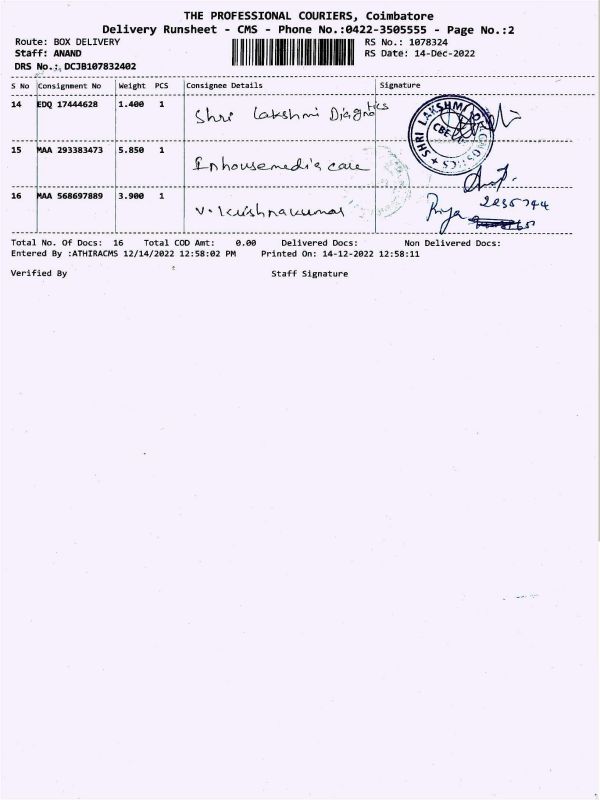 THE PROFESSIONAL COURIERS, Coimbatore
Delivery Runsheet - CMS - Phone No.:0422-3505555 - Page No.:2
Route: BOX DELIVERY RS No.: 1078324
Staff: ANAND RS Date: 14-Dec-2022
DRS No.:, DCJB107832402
S No Consignment No Weight PCS Consignee Details Signature
14 EDQ 17444628 1.400 1 Shri Lakshmi Diagnotics
SHRI LAKSHMI DIAGNOSTICS
CBE
15 MAA 293383473 5.850 1 Inhousemedia care
16 MAA 568697889 3.900 1 V. Krishnakumar Priya
Total No. Of Docs: 16 Total COD Amt: 0.00 Delivered Docs: Non Delivered Docs:
Entered By :ATHIRACMS 12/14/2022 12:58:02 PM Printed On: 14-12-2022 12:58:11
Verified By Staff Signature